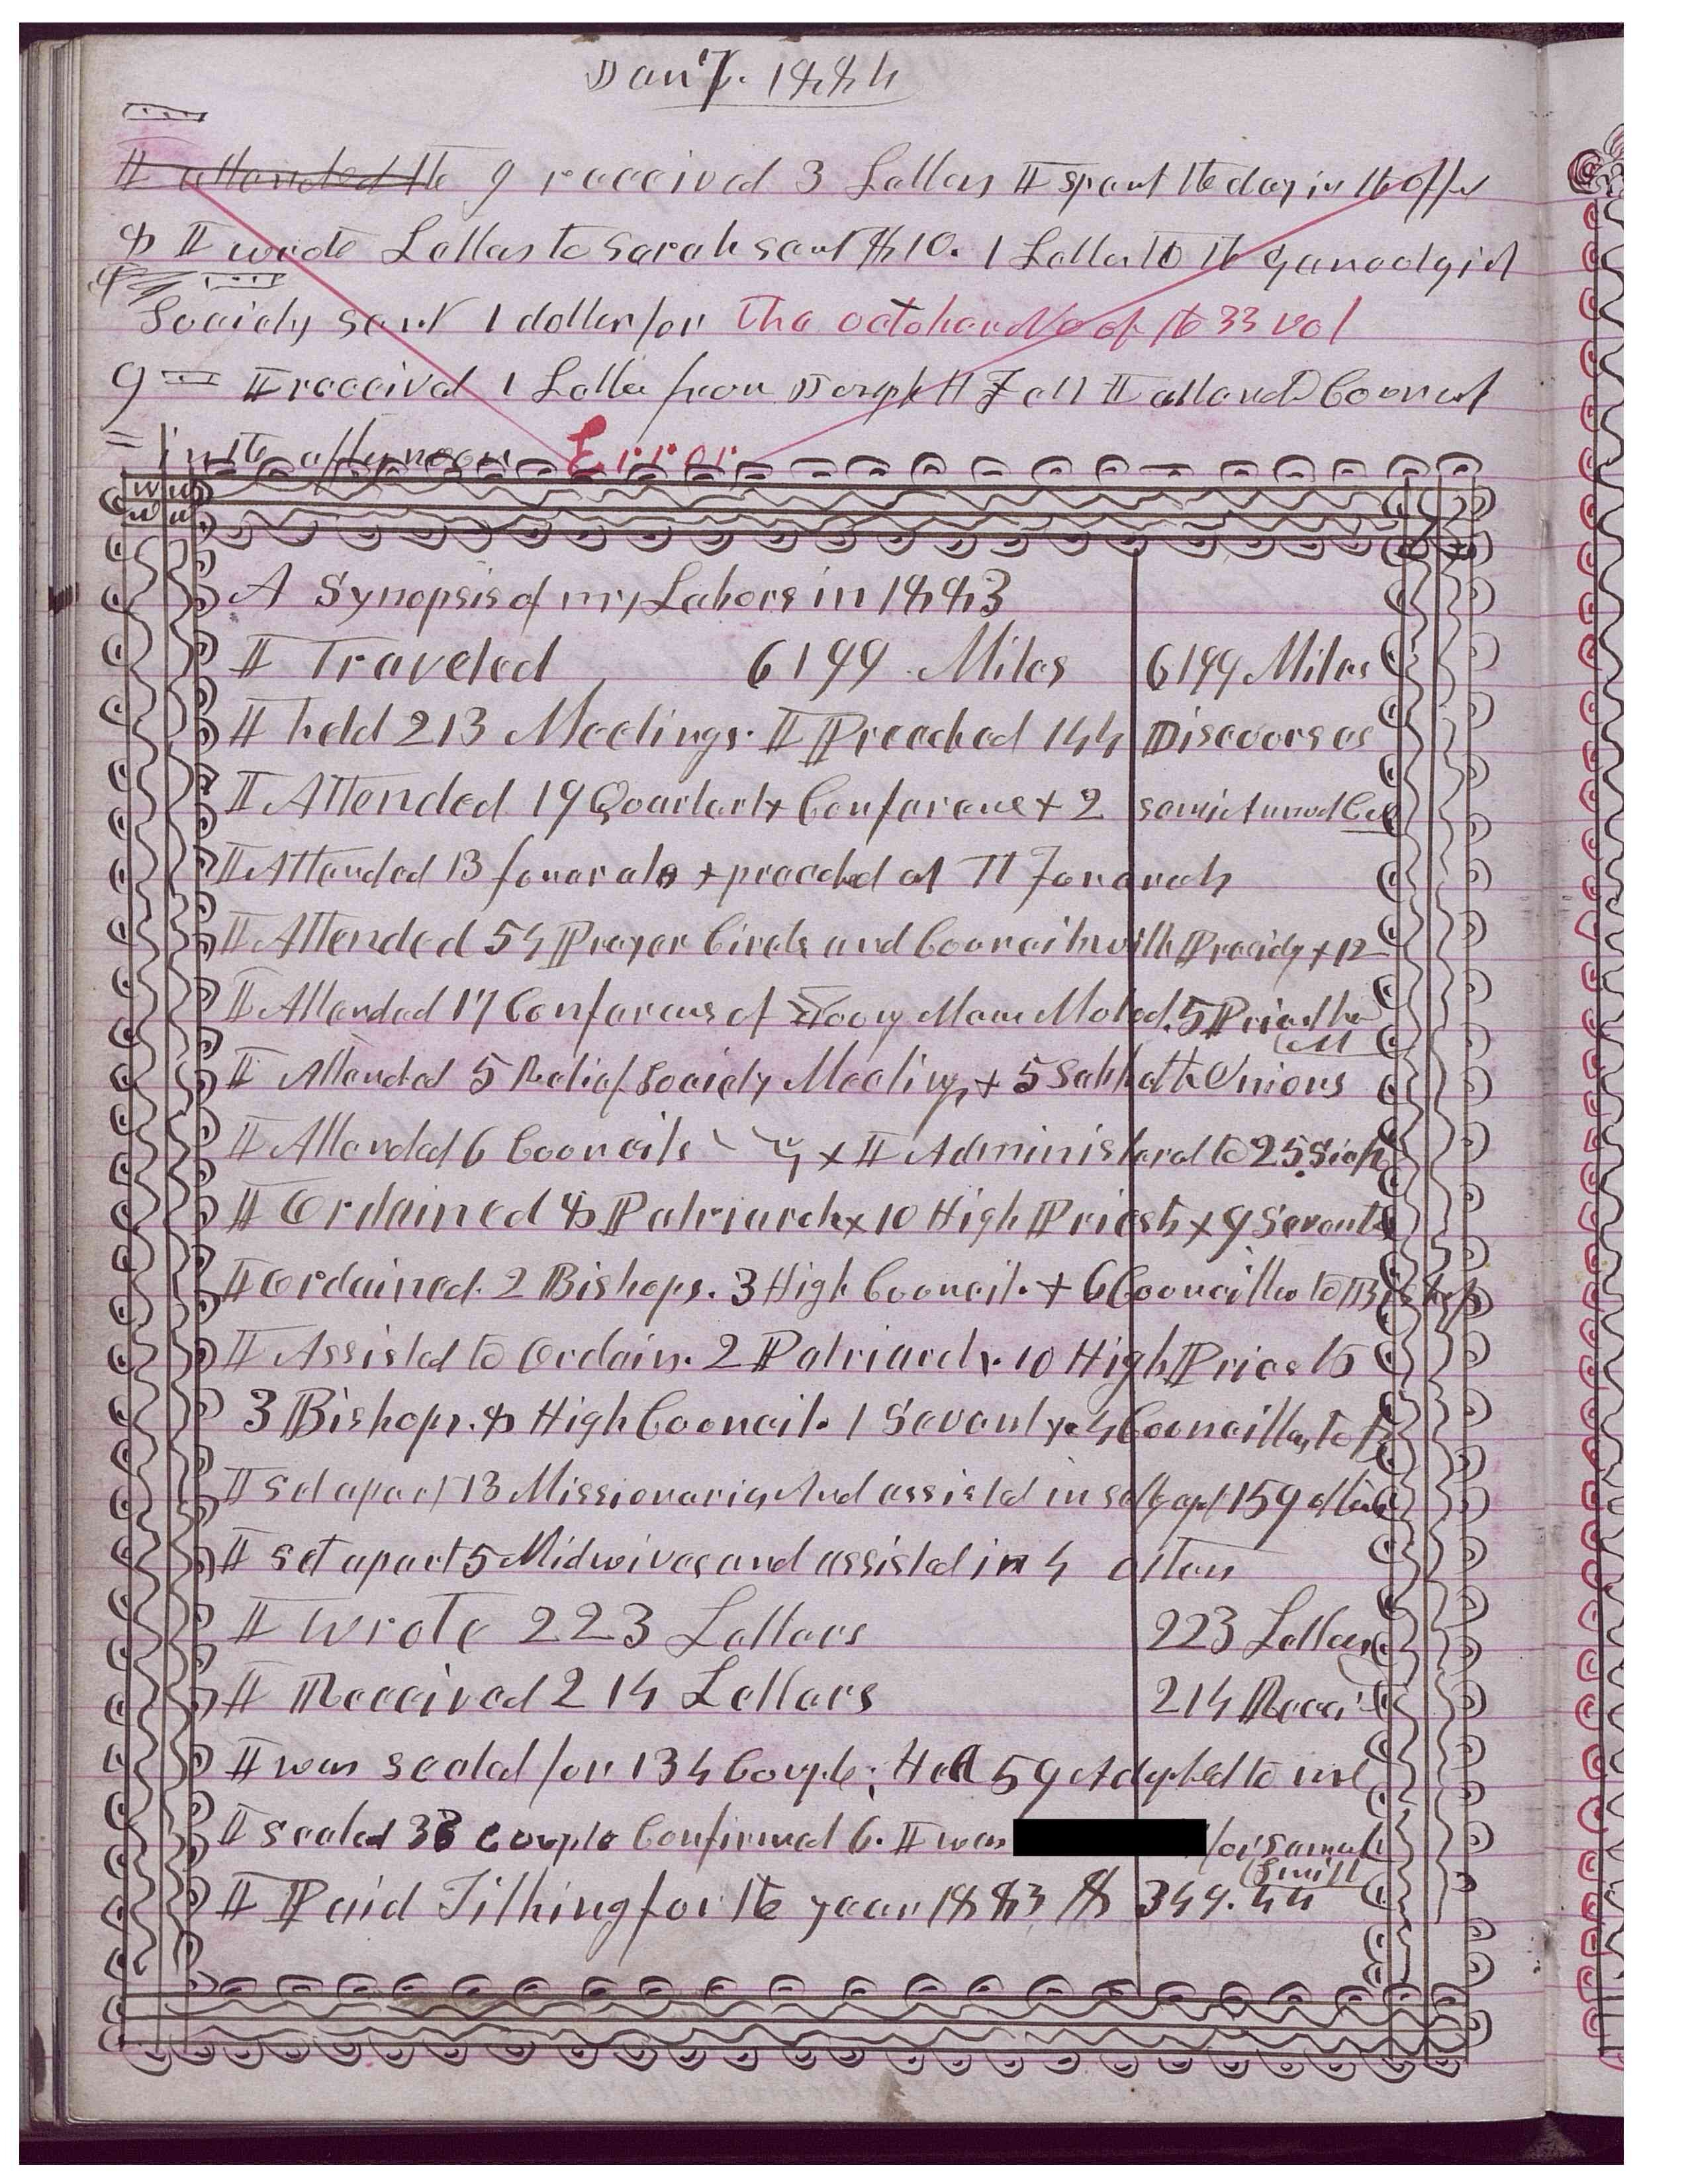 Jan 7. 1884
I attended the 9 received 3 Letters I spent the day in the office
8 I wrote Letters to Sarah sent $10. 1 Letter to the
Society sent 1 dollar for the october No of the 33 vol
9 I received 1 Letter from Joseph H Fell I attended Council
in the afternoon Error
A Synopsis of my Labors in 1883
I Traveled 6199 Miles 6199 Miles
I held 213 Meetings. I Preached 144 Discourses
I Attended 19 Quarterly Conference + 2 semi Annual Con
I Attended 13 funerals + preached at 11 Funerals
I Attended 54 Prayer Circls and Councils with Presidy + 12
I Attended 17 Conferens of Young Mens Muted. 5 Priesthood
M
I Attended 5 Relief Society Meetings + 5 Sabbath Unions
I Attended 6 Councils + I Administered to 25 Sick
I Ordained 8 Patriarch + 10 High Priests + 9 Seventis
I ordained. 2 Bishops. 3 High Council. + 6 Councillors to Bishops
I Assisted to Ordain. 2 Patriarch. 10 High Priests
3 Bishops. 8 High Council. 1 Seventy. 4 Councillors to B
I set apart 13 Missionaries And assisted in settg apt 159 others
I set apart 5 Midwives and assisted in 4 others
I wrote 223 Letters 223 Letters
I Received 214 Letters 214 Recei
I was sealed for 134 Couple; Had 59 Adopted to me
I sealed 33 Couple Confirmed 6. I was for Samuel
Smith
I Paid Tithing for the year 1883 $ 349.44